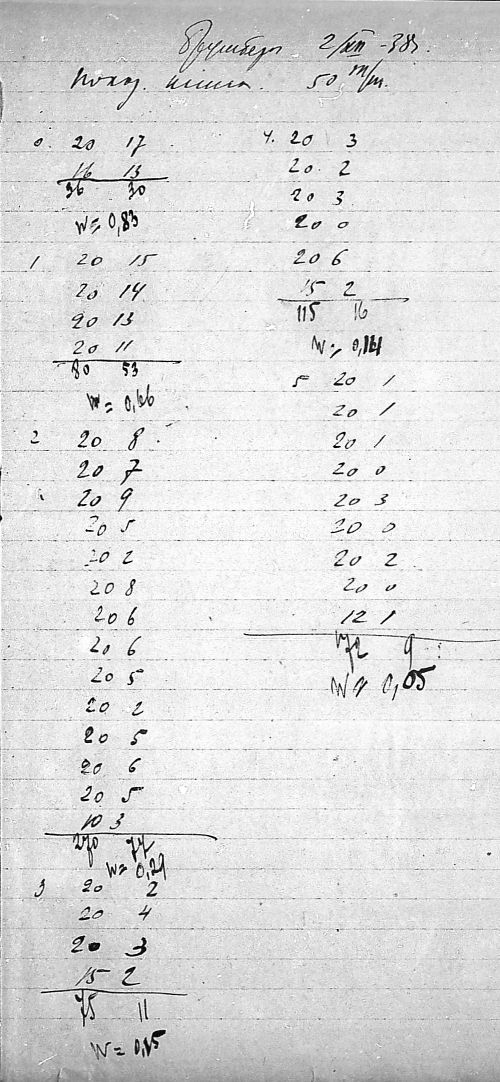 2/XII -38г.
50 m/m.
0. 20 17
16 13
36 30
W = 0,83
1 20 15
20 14
20 13
20 11
80 53
W = 0,66
2 20 8
20 7
20 9
20 5
20 2
20 8
20 6
20 6
20 5
20 2
20 5
20 6
20 5
10 3
270 77
W = 0,29
3 20 2
20 4
20 3
15 2
75 11
W = 0,15
4. 20 3
20 2
20 3
20 0
20 6
15 2
115 16
W = 0,14
5 20 1
20 1
20 1
20 0
20 3
20 0
20 2
20 0
12 1
172 9
W = 0,05